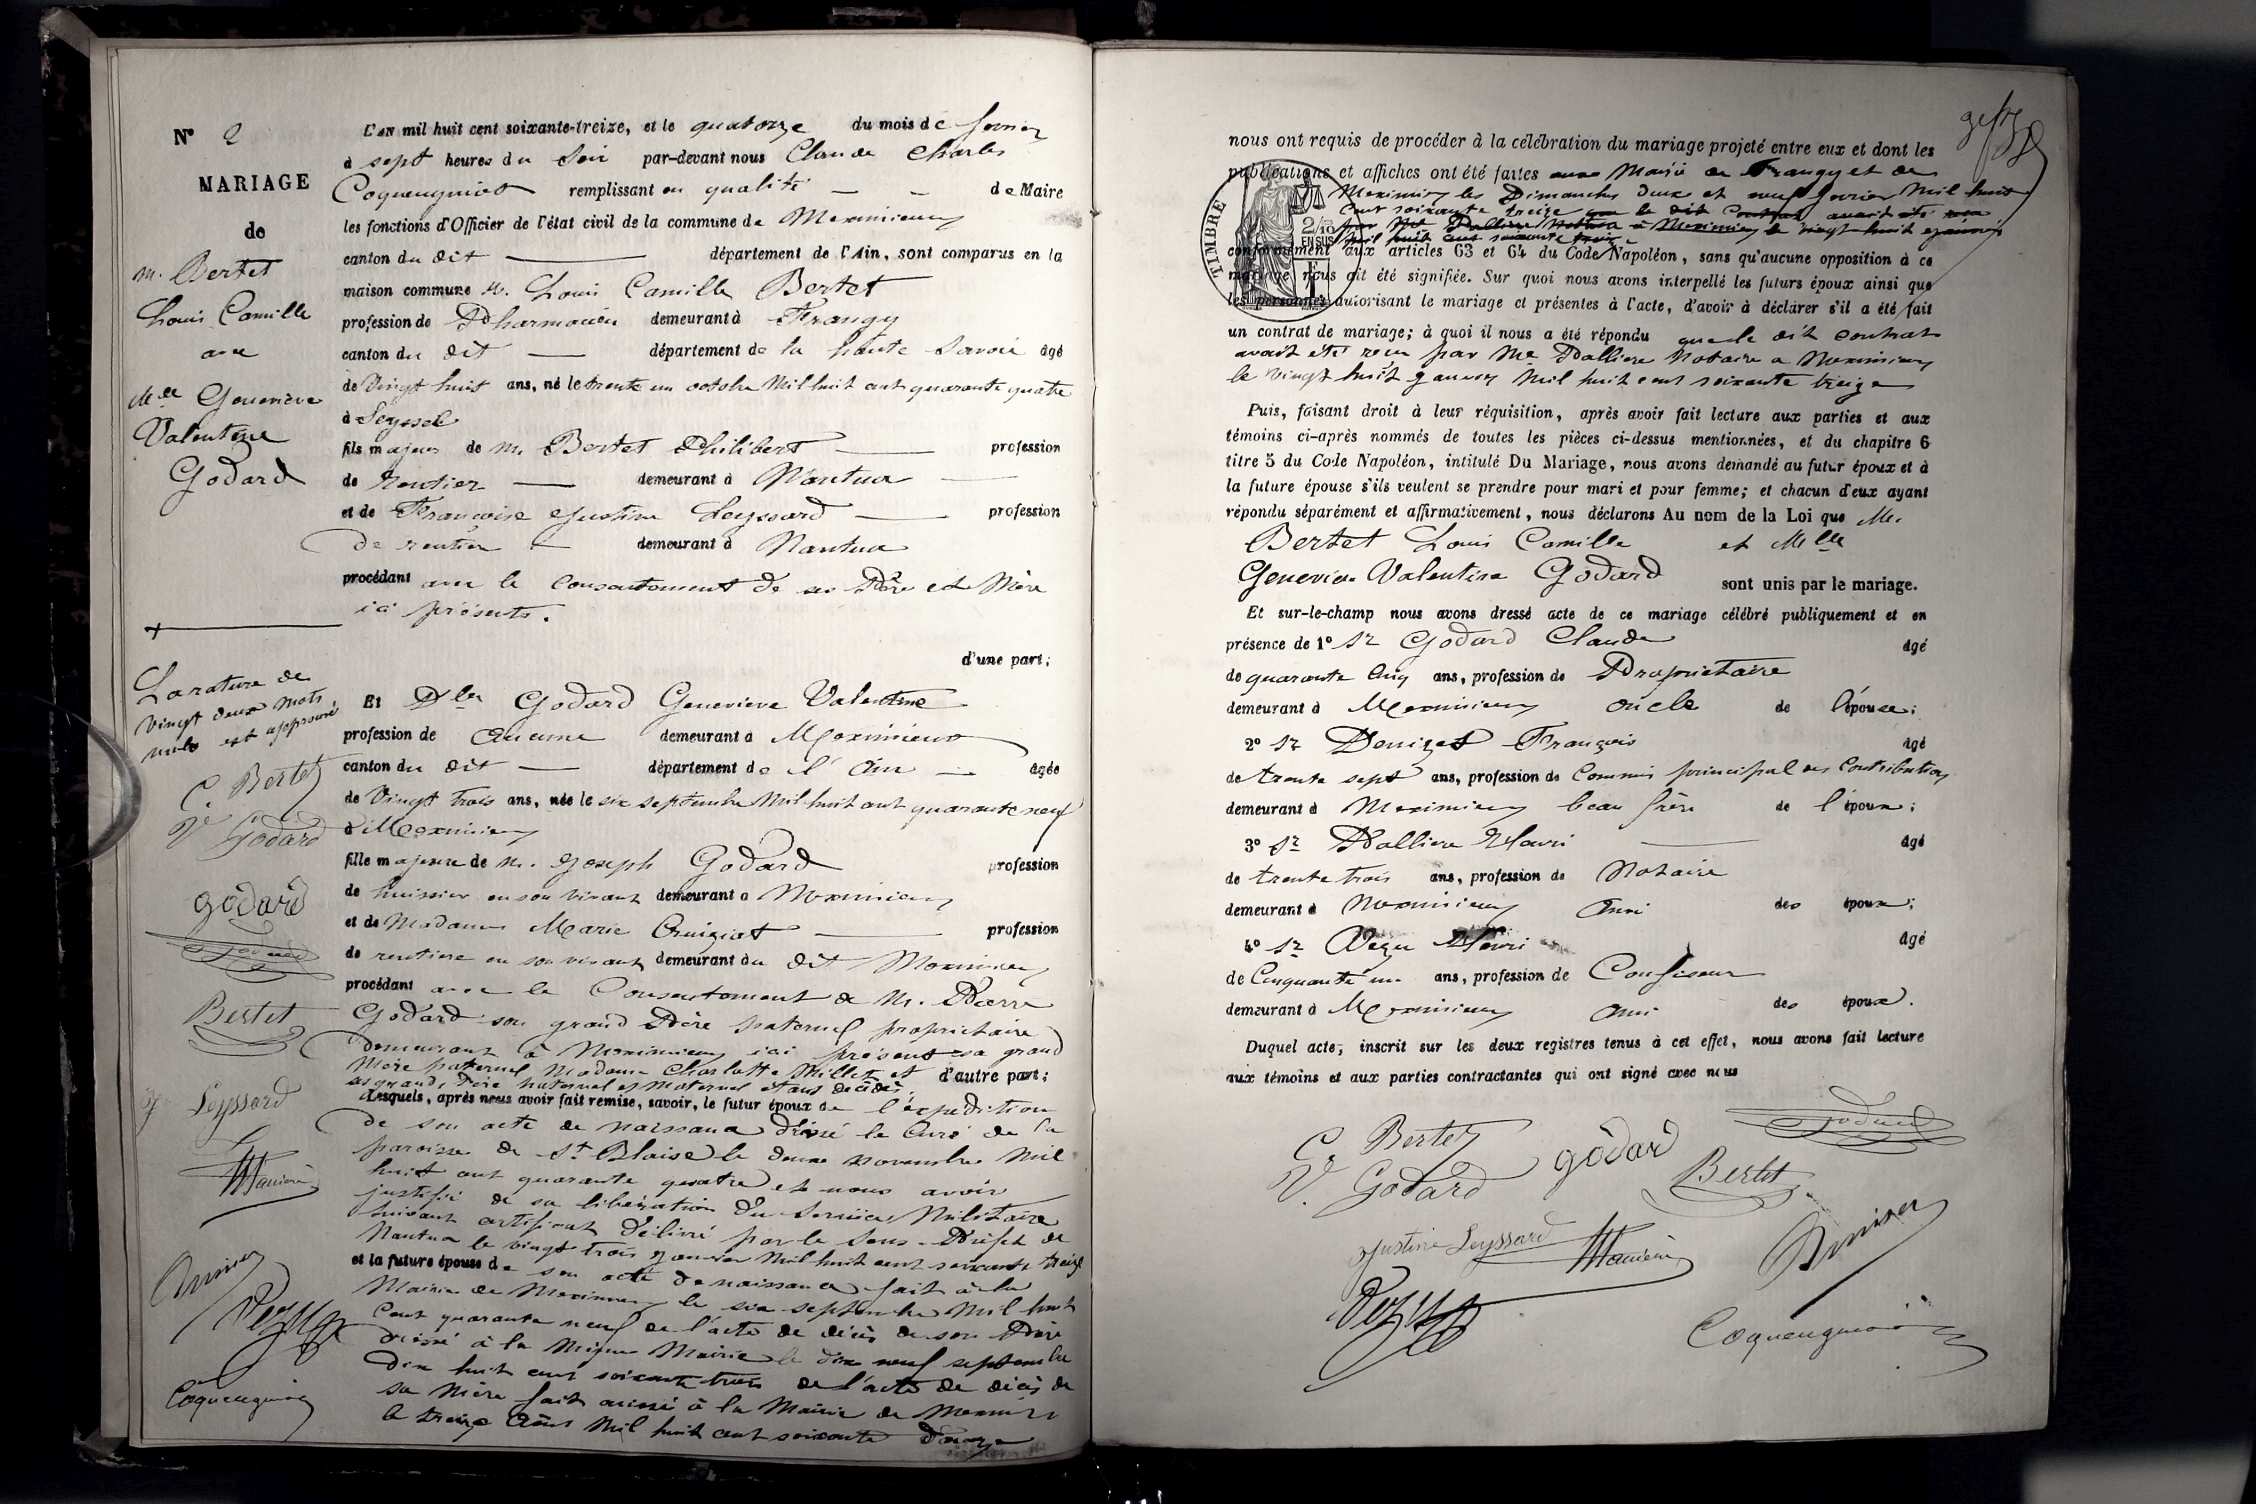 N° 2
MARIAGE
de
M. Bertet
Louis Camille
avec
Melle Geneviève
Valentine
Godard
La rature de
vingt deux mots
nuls est approuvé
C. Bertet
V. Godard
godard
Godard
Bertet
J. Leyssard
Vezu
Coqueugniot
L'an mil huit cent soixante-treize, et le quatorze du mois de février
à sept heures du soir par-devant nous Claude Charles
Coqueugniot remplissant en qualité — — de Maire
les fonctions d'Officier de l'état civil de la commune de Meximieux
canton du dit — département de l'Ain, sont comparus en la
maison commune M. Louis Camille Bertet
profession de Pharmacien demeurant à Frangy
canton du dit — département de la haute Savoie âgé
de vingt huit ans, né le trente un octobre Mil huit cent quarante quatre
à Seyssel
fils majeur de M. Bertet Philibert — profession
de Rentier — demeurant à Nantua —
et de Françoise Justine Leyssard — profession
de rentière — demeurant à Nantua
procédant avec le consentement de ses Père et Mère
ici présents.
d'une part;
Et Dlle Godard Geneviève Valentine
profession de aucune demeurant à Meximieux
canton du dit — département de l'Ain — âgée
de vingt trois ans, née le six septembre Mil huit cent quarante neuf
à Meximieux
fille majeure de M. Joseph Godard profession
de huissier en son vivant demeurant à Meximieux
et de Madame Marie Cruiziat — profession
de rentière en son vivant demeurant du dit Meximieux
procédant avec le Consentement de M. Pierre
Godard son grand Père paternel propriétaire
demeurant à Meximieux ici présent sa grand
Mère paternel Madame Charlotte Millet et
ses grands Père maternel et Maternel étant décédés d'autre part;
Lesquels, après nous avoir fait remise, savoir, le futur époux de l'expédition
de son acte de naissance dressé le Curé de la
paroisse de St Blaise le deux novembre Mil
huit cent quarante quatre et nous avoir
justifié de sa libération du Service Militaire
suivant certificat délivré par le Sous-Préfet de
Nantua le vingt trois janvier Mil huit cent soixante treize
et la future épouse de son acte de naissance fait à la
Mairie de Meximieux le six septembre Mil huit
cent quarante neuf de l'acte de décès de son Père
dressé à la Même Mairie le dix neuf septembre
dix huit cent soixante trois de l'acte de décès de
sa Mère fait aussi à la Mairie de Meximieux
le treize Août Mil huit cent soixante douze
nous ont requis de procéder à la célébration du mariage projeté entre eux et dont les
publications et affiches ont été faites aux Mairie de Frangy et de
Meximieux les Dimanches deux et neuf février Mil huit
cent soixante treize que le dit Contrat avait été
par Me Pallière Notaire à Meximieux le vingt huit janvier
Mil huit cent soixante treize
conformément aux articles 63 et 64 du Code Napoléon, sans qu'aucune opposition à ce
mariage nous ait été signifiée. Sur quoi nous avons interpellé les futurs époux ainsi que
les personnes autorisant le mariage et présentes à l'acte, d'avoir à déclarer s'il a été fait
un contrat de mariage; à quoi il nous a été répondu que le dit contrat
avait été reçu par Me Pallière Notaire à Meximieux
le vingt huit janvier Mil huit cent soixante treize
TIMBRE
2/10
EN SUS
Puis, faisant droit à leur réquisition, après avoir fait lecture aux parties et aux
témoins ci-après nommés de toutes les pièces ci-dessus mentionnées, et du chapitre 6
titre 5 du Code Napoléon, intitulé Du Mariage, nous avons demandé au futur époux et à
la future épouse s'ils veulent se prendre pour mari et pour femme; et chacun d'eux ayant
répondu séparément et affirmativement, nous déclarons Au nom de la Loi que M.
Bertet Louis Camille et Melle
Geneviève Valentine Godard sont unis par le mariage.
Et sur-le-champ nous avons dressé acte de ce mariage célébré publiquement et en
présence de 1° Sr Godard Claude âgé
de quarante cinq ans, profession de Propriétaire
demeurant à Meximieux oncle de l'épouse;
2° Sr François âgé
de trente sept ans, profession de Commis principal des Contributions
demeurant à Meximieux beau frère de l'époux;
3° Sr Pallière Henri — âgé
de trente trois ans, profession de Notaire
demeurant à Meximieux Ami des époux;
4° Sr Vezu Henri âgé
de Cinquante un ans, profession de Confiseur
demeurant à Meximieux ami des époux.
Duquel acte, inscrit sur les deux registres tenus à cet effet, nous avons fait lecture
aux témoins et aux parties contractantes qui ont signé avec nous
C. Bertet
V. Godard
godard
Godard
Bertet
Justine Leyssard
Vezu
Coqueugniot